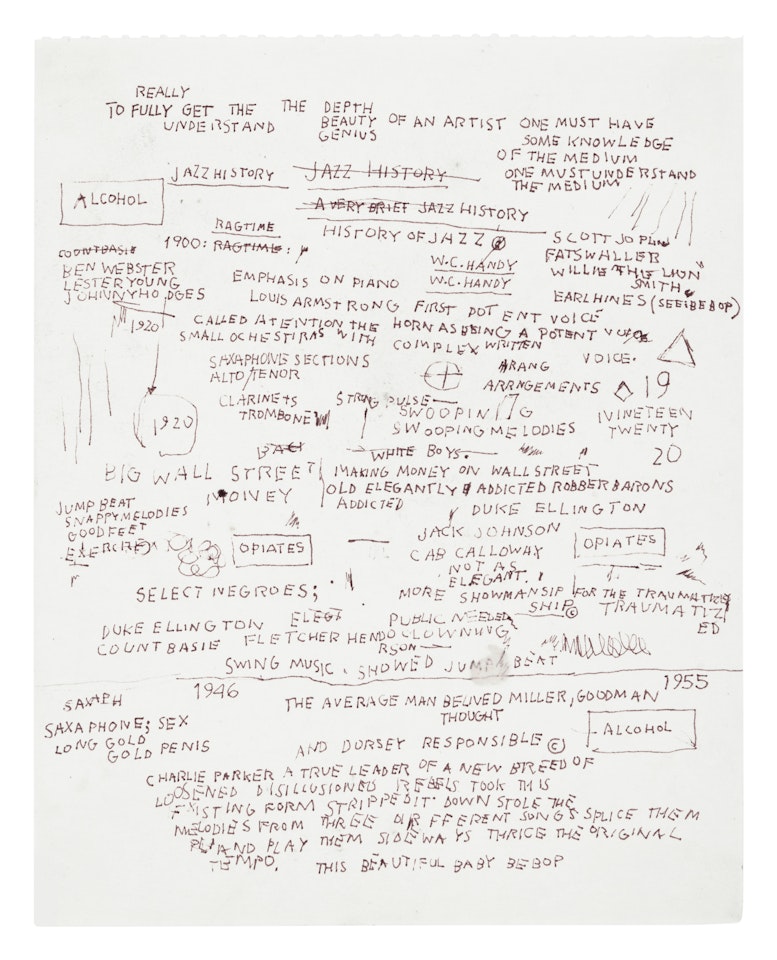 REALLY
TO FULLY GET THE THE DEPTH
UNDERSTAND BEAUTY OF AN ARTIST ONE MUST HAVE
GENIUS SOME KNOWLEDGE
OF THE MEDIUM
JAZZ HISTORY JAZZ HISTORY ONE MUST UNDERSTAND
THE MEDIUM
ALCOHOL
A VERY BRIEF JAZZ HISTORY
RAGTIME
1900: RAGTIME: HISTORY OF JAZZ SCOTT JOPLIN
COUNT BASIE W.C. HANDY FATS WALLER
BEN WEBSTER W.C. HANDY WILLIE "THE LION"
LESTER YOUNG EMPHASIS ON PIANO SMITH
JOHNNY HODGES EARL HINES (SEE: BEBOP)
LOUIS ARMSTRONG FIRST POT ENT VOICE
1920 CALLED ATENTION THE HORN AS BEING A POTENT VOICE
SMALL OCHESTIRAS WITH COMPLEX WRITTEN
VOICE.
SAXAPHONE SECTIONS ARANG
ALTO/TENOR ARRNGEMENTS 19
CLARINETS STRONG PULSE—
TROMBONE SWOOPING NINETEEN
1920 SWOOPING MELODIES TWENTY
BACK WHITE BOYS. 20
BIG WALL STREET MAKING MONEY ON WALL STREET
MONEY OLD ELEGANTLY ADDICTED ROBBER BARONS
ADDICTED DUKE ELLINGTON
JUMP BEAT
SNAPPY MELODIES
GOOD FEET JACK JOHNSON
OPIATES CAB CALLOWAY OPIATES
NOT AS
ELEGANT.
SELECT NEGROES; MORE SHOWMANSIP FOR THE TRAUMATIZE
SHIP© TRAUMATIZ
ED
DUKE ELLINGTON ELEGT PUBLIC NEEDED
COUNT BASIE FLETCHER HENDO CLOWNING
RSON—
SWING MUSIC. SHOWED JUMP BEAT
SAXAPH 1946 1955
THE AVERAGE MAN BELIVED MILLER, GOODMAN
THOUGHT
SAXAPHONE; SEX
LONG GOLD ALCOHOL
GOLD PENIS AND DORSEY RESPONSIBLE ©
CHARLIE PARKER A TRUE LEADER OF A NEW BREED OF
LOOSENED DISILLUSIONED REBELS TOOK THIS
EXISTING FORM STRIPPED IT DOWN STOLE THE
MELODIES FROM THREE DIFFERENT SONGS SPLICE THEM
AND PLAY THEM SIDEWAYS THRICE THE ORIGINAL
TEMPO. THIS BEAUTIFUL BABY BEBOP